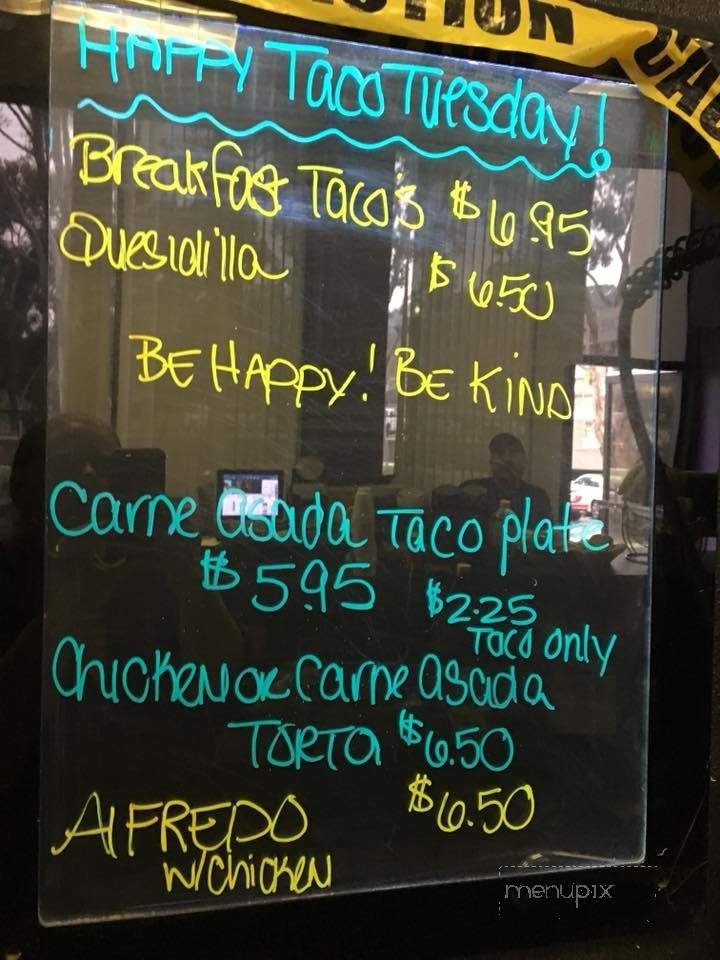 CAUTION
CAU
HAPPY Taco Tuesday!
Breakfast Tacos $6.95
Quesidilla $6.50
BE HAPPY! BE KIND
Carne asada Taco plate
$5.95 $2.25
Taco only
Chicken or Carne asada
TORTA $6.50
AlFREDO $6.50
w/chicken
menupix